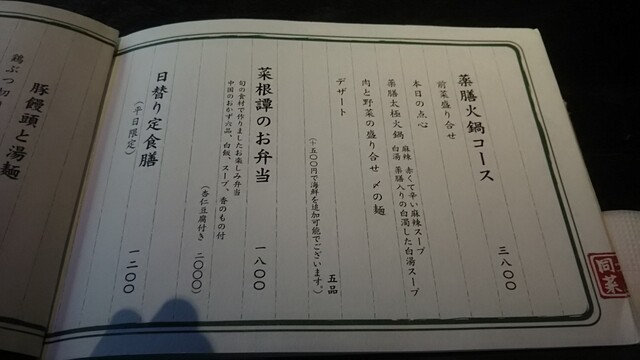 薬膳火鍋コース
三八〇〇
前菜盛り合せ
本日の点心
薬膳太極火鍋 麻辣 赤くて辛い麻辣スープ
白湯 薬膳入りの白濁した白湯スープ
肉と野菜の盛り合せ 〆の麺
デザート
五品
(+五〇〇円で海鮮を追加可能でございます。)
菜根譚のお弁当
一八〇〇
旬の食材で作りましたお楽しみ弁当
中国のおかず六品、白飯、スープ、香のもの付
(杏仁豆腐付き 二〇〇〇)
日替り定食膳
(平日限定)
一二〇〇
豚饅頭と湯麺
鶏ぶつ切り
同菜